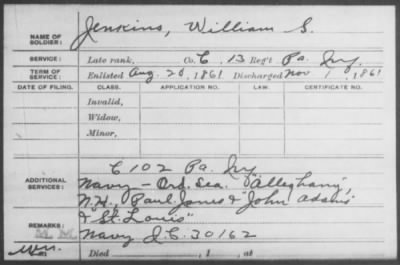 NAME OF SOLDIER: Jenkins, William S.
SERVICE: Late rank, Co. C, 13 Reg't Pa. Inf.
TERM OF SERVICE: Enlisted Aug 20, 1861 Discharged Nov 1, 1861
DATE OF FILING. CLASS. APPLICATION NO. LAW. CERTIFICATE NO.
Invalid,
Widow,
Minor,
C 102 Pa. Inf
ADDITIONAL SERVICES: Navy - Ord. Sea. "Alleghany",
N.H., Paul Jones & "John Adams"
& "St. Louis"
REMARKS: Navy I.C. 30162
Died , 1 , at